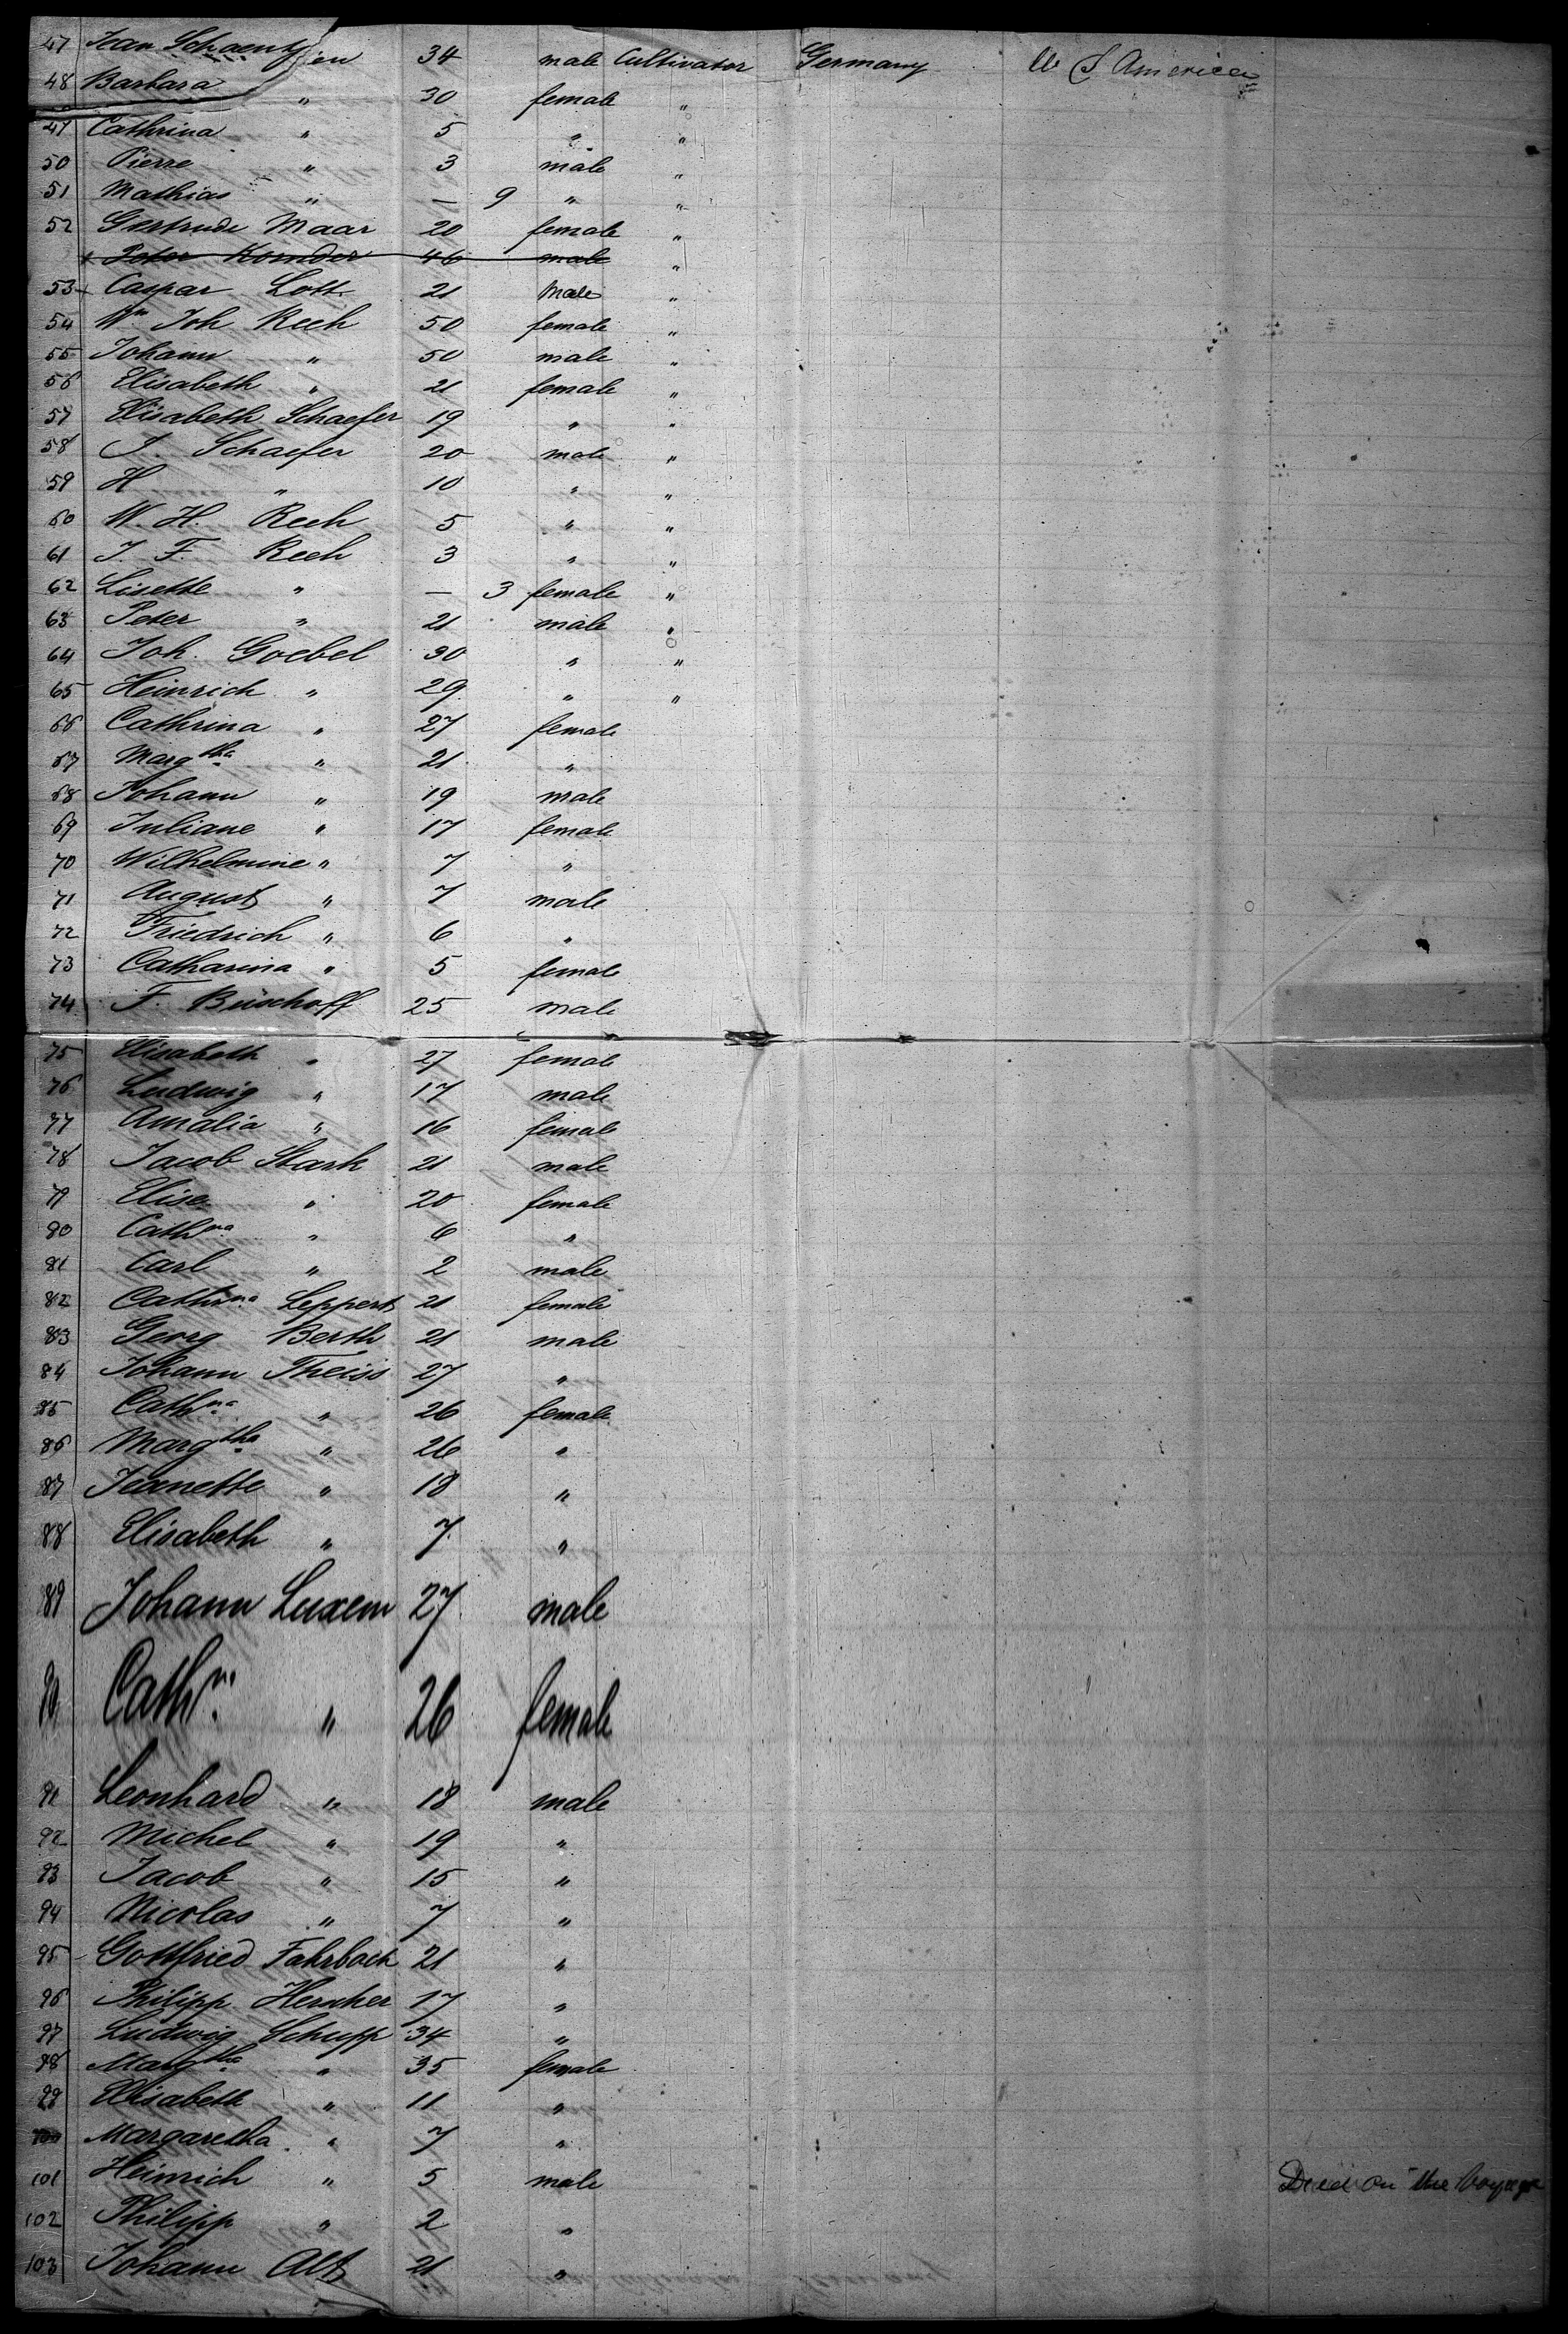 47 Jean Schaentgen 34 male Cultivator Germany U S America
48 Barbara " 30 female "
47 Cathrina " 5 " "
50 Pierre " 3 male "
51 Mathias " — 9 " "
52 Gertrude Maar 20 female "
Peter Komder 46 male "
53 Caspar Lott 21 Male "
54 Wm Joh Rech 50 female "
55 Johann " 50 male "
56 Elisabeth " 21 female "
57 Elisabeth Schaefer 19 " "
58 J. Schaefer 20 male "
59 H " 10 " "
60 W. H. Rech 5 " "
61 J. F. Rech 3 " "
62 Lisette " — 3 female "
63 Peter " 21 male "
64 Joh. Goebel 30 " "
65 Heinrich " 29 " "
66 Cathrina " 27 female
67 Margtha " 21 "
68 Johann " 19 male
69 Juliane " 17 female
70 Wilhelmine " 7 "
71 August " 7 male
72 Friedrich " 6 "
73 Catharina " 5 female
74 F. Bischoff 25 male
75 Elisabeth " 27 female
76 Ludwig " 17 male
77 Amalia " 16 female
78 Jacob Stark 21 male
79 Elise " 20 female
80 Cathna " 6 "
81 Carl " 2 male
82 Cathrna Leppert 21 female
83 Georg Berth 21 male
84 Johann Theiss 27 "
85 Cathna " 26 female
86 Margtha " 26 "
87 Jeanette " 18 "
88 Elisabeth " 7 "
89 Johann Luxem 27 male
90 Cathna " 26 female
91 Leonhard " 18 male
92 Michel " 19 "
93 Jacob " 15 "
94 Nicolas " 7 "
95 Gottfried Fahrbach 21 "
96 Philipp Herscher 17 "
97 Ludwig Schupp 34 "
98 Margtha " 35 female
99 Elisabeth " 11 "
100 Margaretha " 7 "
101 Heinrich " 5 male Died on the Voyage
102 Philipp " 2 "
103 Johann Alt 21 "